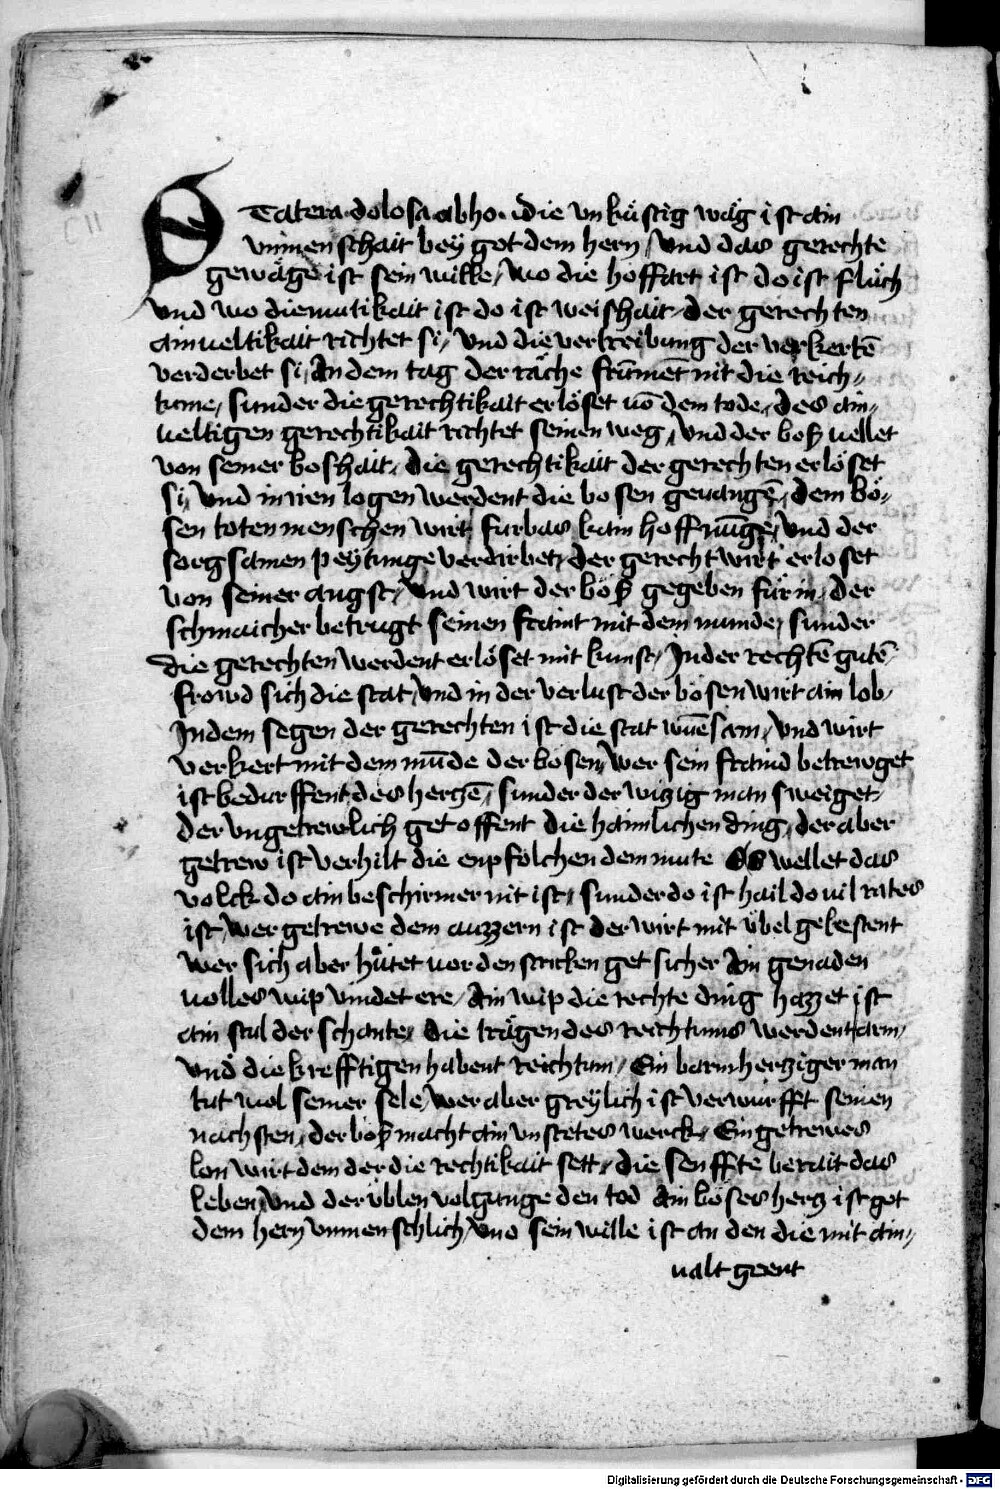 Statera dolosa abho. die vnküstig wäg ist ain
vnmenschait bey got dem hern / vnd das gerechte
gewäge ist sein wille / wo die hoffart ist do ist fluch
vnd wo diemutikait ist do ist weishait / der gerechten
ainueltikait richtet si / vnd die vertreibung der verkertē
verderbet si / An dem tag der räche frūmēt nit die reich„
tume / sunder die gerechtikait erlöset uō dem tode / des ain„
ueltigen gerechtikait richtet seinen weg / vnd der boß uellet
von seiner boshait / die gerechtikait der gerechten erlöset
si / vnd in iren logen werdent die bosen geuangē / dem bö„
sen toten menschen wirt fürbas kain hoffnūge / vnd der
sorgsamen peytunge verdirbet / der gerecht wirt erloset
von seiner angst / vnd wirt der böß gegeben für in / der
schmaicher betrugt seinen fraint mit dem munde / sunder
die gerechten werdent erlöset mit kunst / In der rechtē gutē /
frowd sich die stat / vnd in der verlust der bösen wirt ain lob /
In dem segen der gerechten ist die stat wūesam / vnd wirt
verkert mit dem mūde der bosen / wer sein fraind betrewget
ist bedurffent des herczē / sunder der wiczig man sweiget /
der vngetrewlich get offent die haimlichen ding / der aber
getrew ist verhilt die enpfolchen dem mute Es wellet das
volck do ain beschirmer nit ist / sunder do ist hail do uil rates
ist / wer getrewe dem auzzern ist der wirt mit übel gebestent
wer sich aber hütet uor den stricken get sicher Ain genaden
uolles wip vindet ere / Ain wip die rechte ding hazzet ist
ain stul der schante / die trägen des reichtums werdent arm /
vnd die krefftigen habent reichtum / Ein barmhercziger man
tut wol seiner sele / wer aber greylich ist verwürfft seinen
nachsten / der böß macht ain vnstetes werck / Ein getrewes
lon wirt dem der die rechtikait sett / die senffte berait das
leben / vnd der üblen volgunge den tod Ain böses hercz ist got
dem hern vnmenschlich / vnd sein wille ist an den die mit ain„
ualt geent
Digitalisierung gefördert durch die Deutsche Forschungsgemeinschaft - DFG